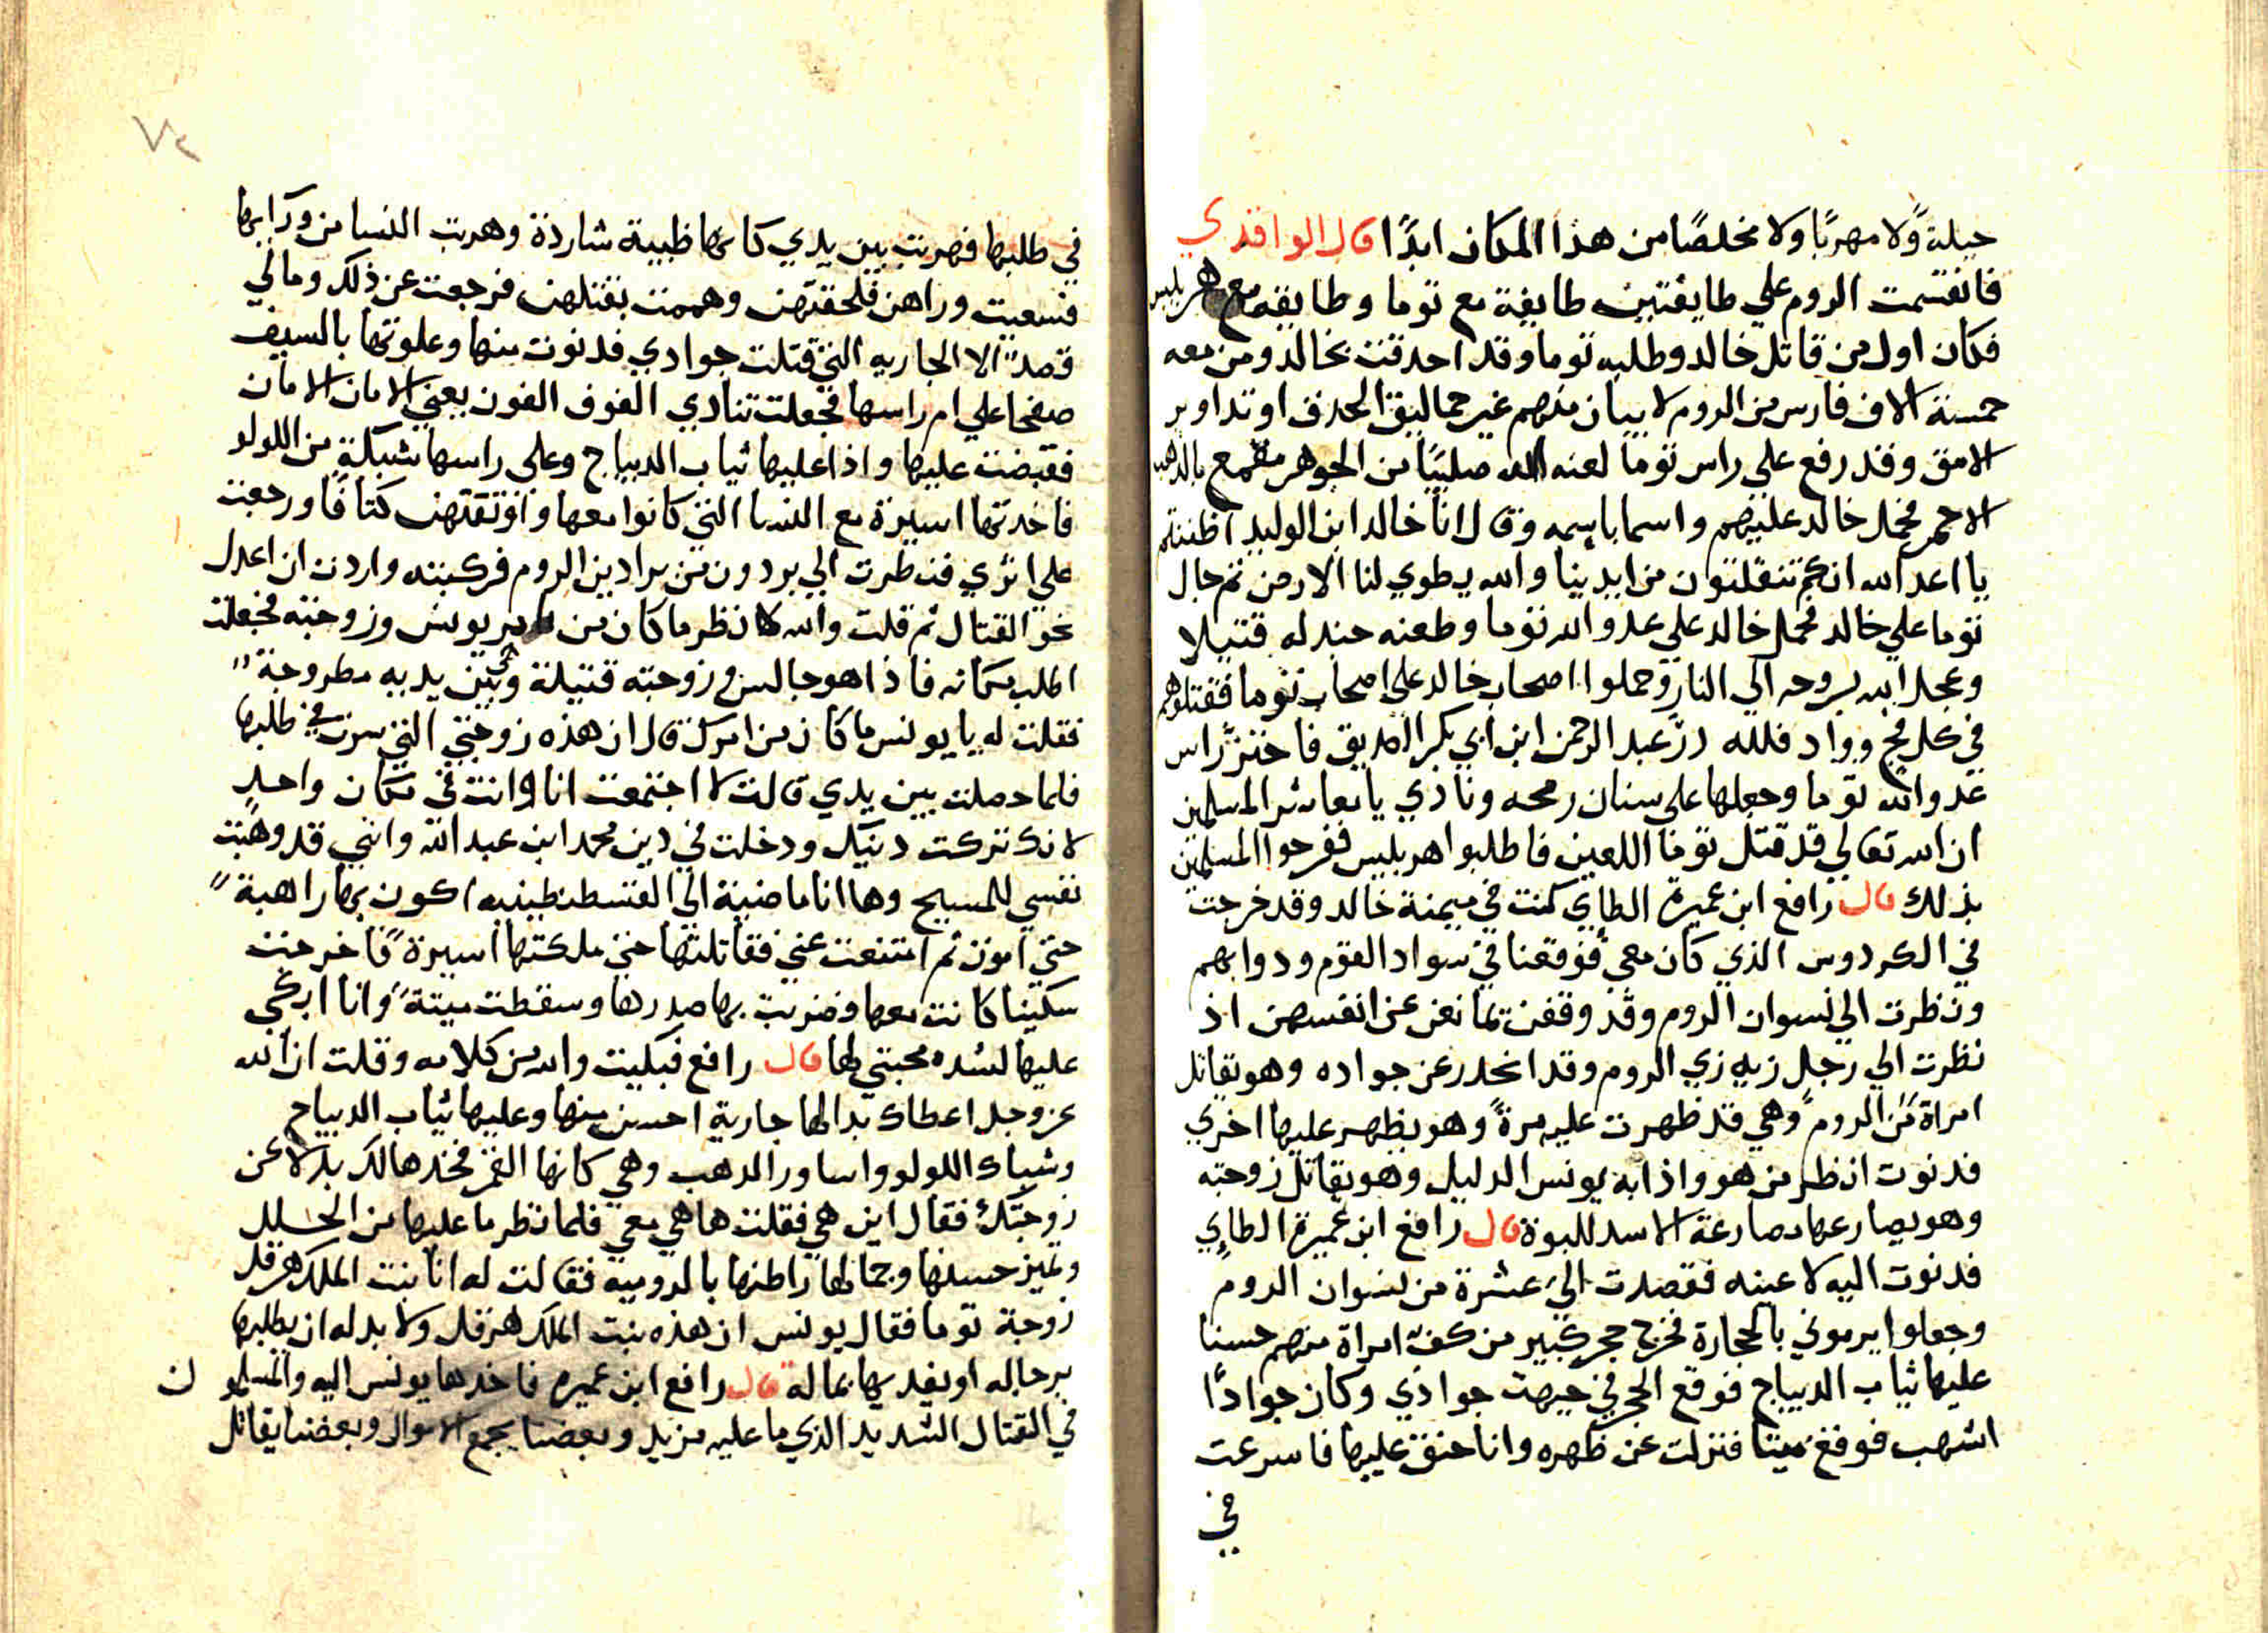 حيلةً ولا مهربًا ولا مخلصًا من هذا المكان ابدًا قال الواقدي
فانقسمت الروم علي طايفتين طايفة مع توما وطايفه مع هربليس
فكان اول من قاتل خالد وطلبه توما وقد احدقت بخالد ومن معه
خمسة الاف فارس من الروم لا يبان منهم غير حماليق الحدق او تداوير
الامق وقد رفع علي راس توما لعنه الله صليبًا من الجوهر مقمع بالذهب
الاحمر فحمل خالد عليهم واسما باسمه وقال انا خالد ابن الوليد اظننتم
يا اعد الله انكم تنفلتون من ايدينا والله يطوي لنا الارض ثم جال
توما علي خالد فحمل خالد علي عدو الله توما وطعنه جندله قتيلا
وعجل الله بروحه الي النار وحملوا اصحاب خالد علي اصحاب توما فقتلوهم
في كل فج وواد فلله درّ عبد الرحمن ابن ابي بكر الصديق فاحتزّ راس
عدو الله توما وجعلها على سنان رمحه ونادي يا معاشر المسلمين
ان الله تعالي قد قتل توما اللعين فاطلبوا هربليس ففرحوا المسلمين
بذلك قال رافع ابن عميرة الطاي كنت في ميمنة خالد وقد خرجت
في الكردوس الذي كان معي فوقعنا في سواد القوم ودوابهم
ونظرت الي نسوان الروم وقد وقفت تمانعن عن انفسهن اذ
نظرت الي رجل زيه زي الروم وقد انحدر عن جواده وهو يقاتل
امراة من الروم وهي قد ظهرت عليه مرةً وهو يظهر عليها اخري
فدنوت انظر من هو واذا به يونس الدليل وهو يقاتل زوجته
وهو يصارعها مصارعة الاسد للبوة قال رافع ابن عميرة الطاي
فدنوت اليه لاعينه فقصدت اليَ عشرة من نسوان الروم
وجعلوا يرموني بالحجارة فخرج حجر كبير من كف امراة منهم حسنا
عليها ثياب الديباج فوقع الحجر في جبهت جوادي وكان جوادًا
اشهب فوقع ميتا فنزلت عن ظهره وانا حنق عليها فاسرعت
في
٧٢
في طلبها فهربت بين يدي كانها ظبية شاردة وهربت النسا من ورايها
فسعيت وراهن فلحقتهن وهممت بقتلهن فرجعت عن ذلك وما لي
قصدً الا الجاريه التي قتلت جوادي فدنوت منها وعلوتها بالسيف
صفحا علي ام راسها فجعلت تنادي الفوف الفون يعني الامان الامان
فقبضت عليها واذا عليها ثياب الديباج وعلى راسها شبكة من اللولو
فاخدتها اسيرة مع النسا التي كانوا معها واوتقتهن كتافًا ورجعت
علي اثري فنظرت الي بردون من برادين الروم فركبته واردت ان اعدل
نحو القتال ثم قلت والله لانظر ما كان من خبر يونس وزوجته فجعلت
اطلب مكانه فاذا هو جالس وزوجته قتيلة وبين يديه مطروحة
فقلت له يا يونس ما كان من امرك قال ان هذه زوجتي التي سرت في طلبها
فلما حصلت بين يدي قالت لا اجتمعت انا وانت في مكان واحدٍ
لانك تركت دينك ودخلت في دين محمد ابن عبد الله وانني قد وهبت
نفسي للمسيح وها انا ماضية الي القسطنطينيه اكون بها راهبة
حتي اموت ثم امتنعت عني فقاتلتها حتى ملكتها اسيرةً فاخرجت
سكينا كانت معها وضربت بها صدرها وسقطت ميتة وانا ابكي
عليها لشده محبتي لها قال رافع فبكيت والله من كلامه وقلت ان الله
عز وجل اعطاك بدالها جارية احسن منها وعليها ثياب الديباج
وشباك اللولو واساور الدهب وهي كانها القمر فخدها لك بدلا عن
زوجتك فقال اين هي فقلت ها هي معي فلما نظر ما عليها من الحلل
وتميز حسنها وجمالها راطنها بالروميه فقالت له انا بنت الملك هرقل
زوجة توما فقال يونس ان هذه بنت الملك هرقل ولا بد له ان يطلبها
برجاله او يفديها بماله قال رافع ابن عميره فاخدها يونس اليه والمسلمون
في القتال الشديد الذي ما عليه مزيد وبعضنا يجمع الاموال وبعضنا يقاتل